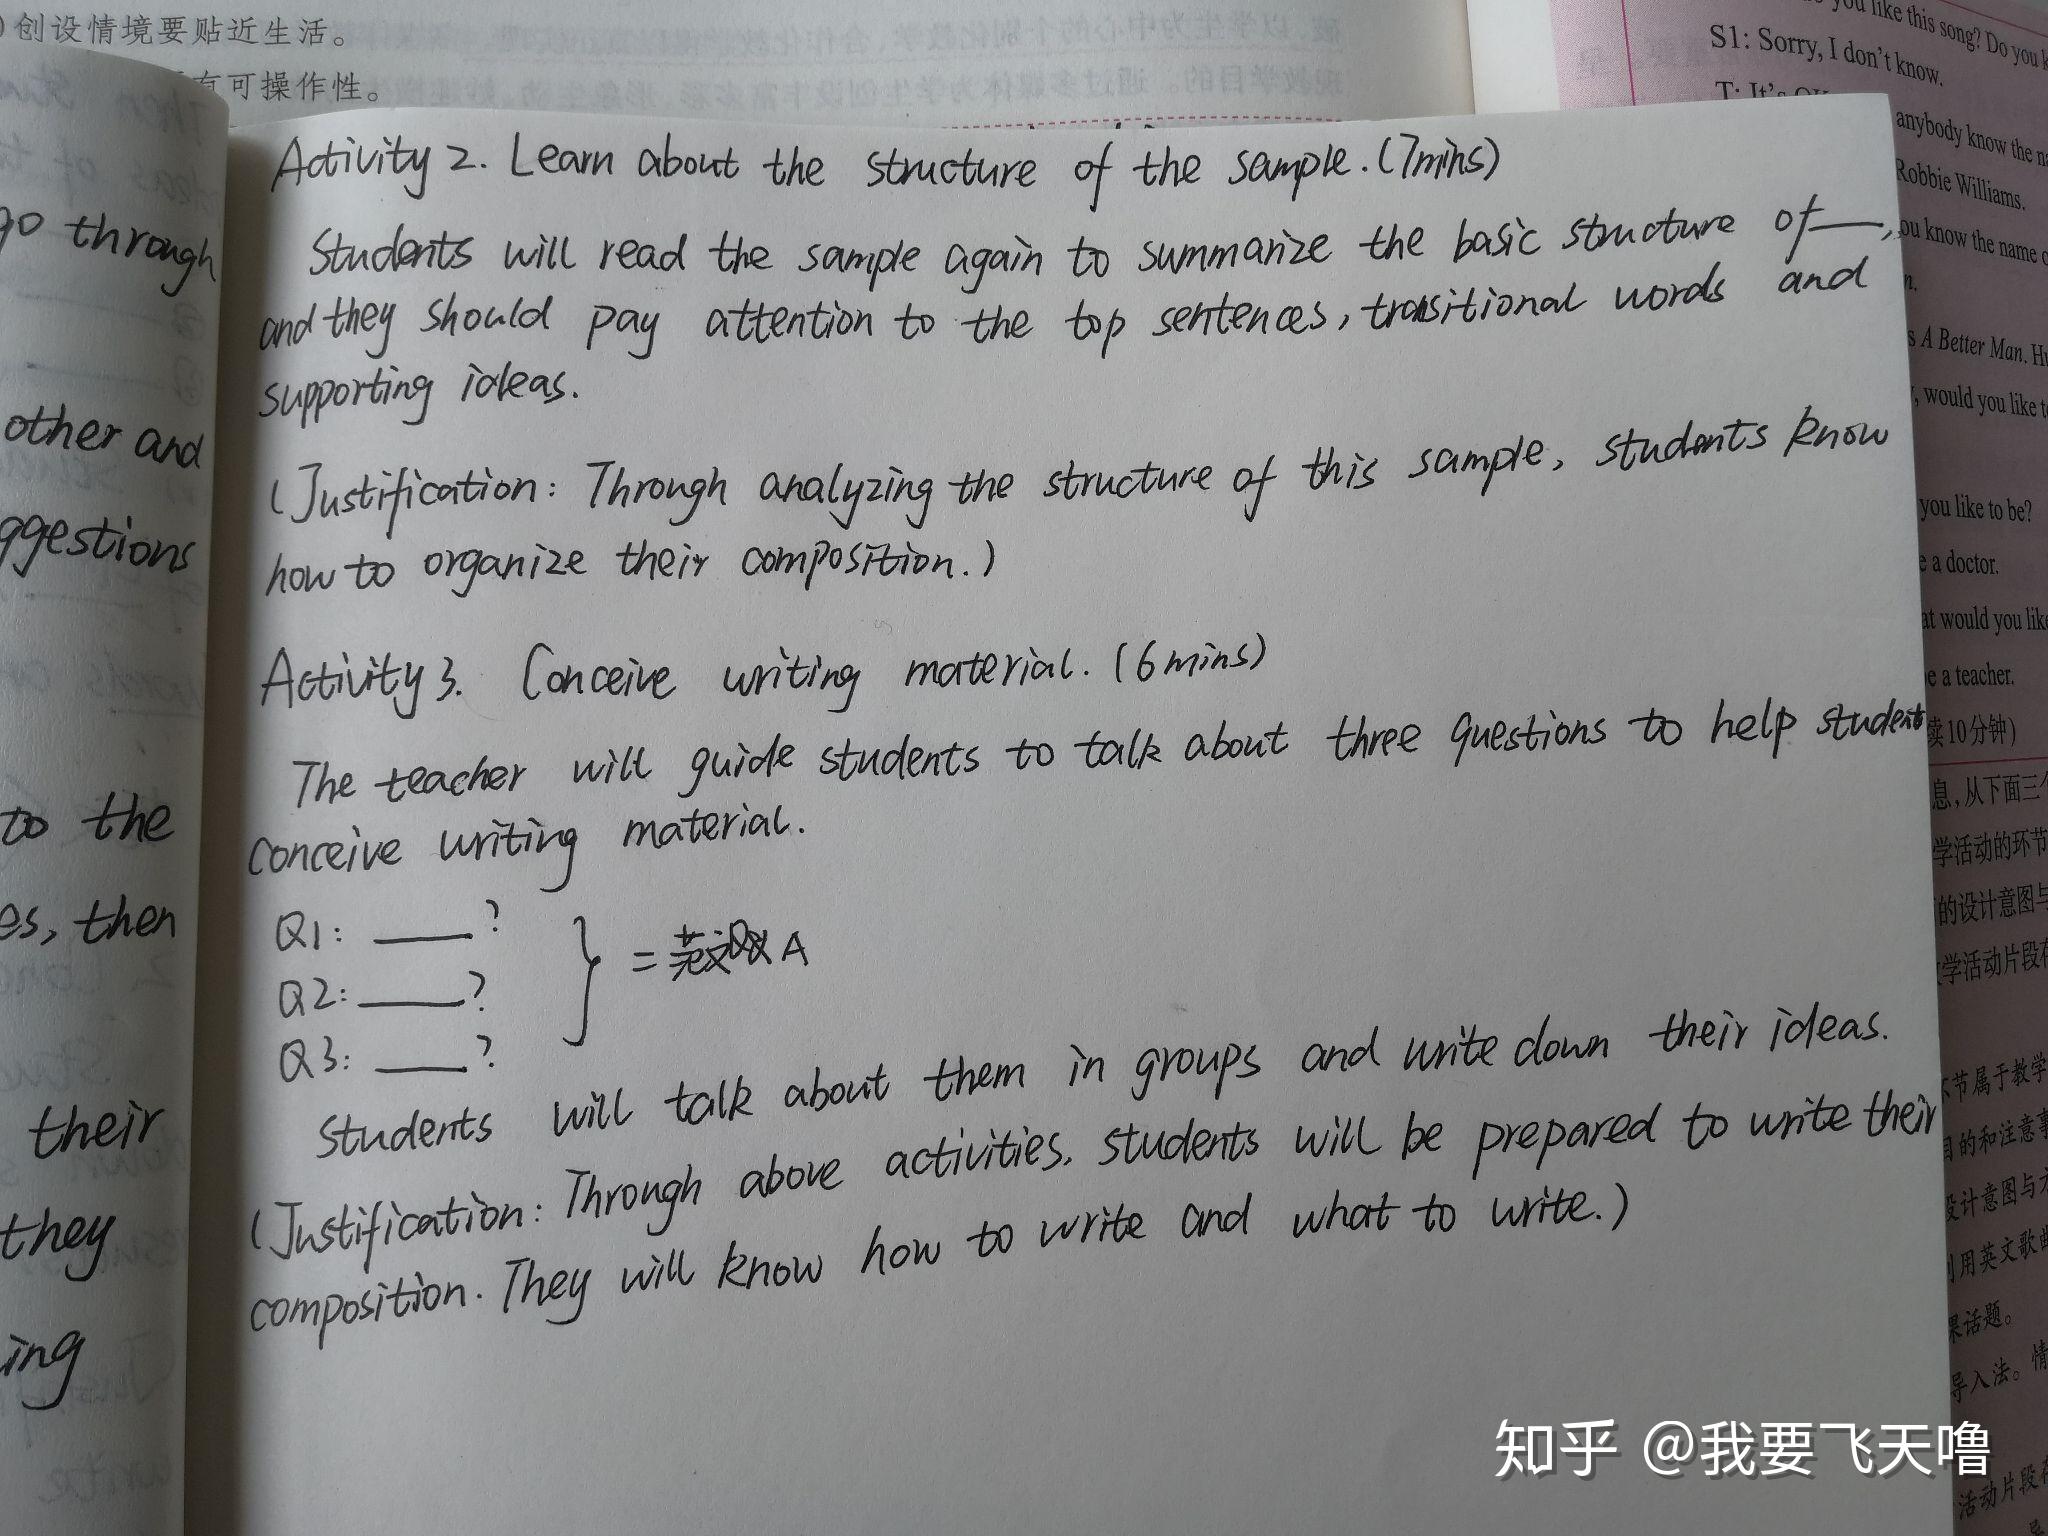 )创设情境要贴近生活。
有可操作性。
go through
other and
ggestions
to the
es, then
their
they
ing
Activity 2. Learn about the structure of the sample. (7mins)
Students will read the sample again to summarize the basic structure of ___,
and they should pay attention to the top sentences, transitional words and
supporting ideas.
(Justification: Through analyzing the structure of this sample, students know
how to organize their composition.)
Activity 3. Conceive writing material. (6 mins)
The teacher will guide students to talk about three questions to help student
conceive writing material.
Q1: ___?
Q2: ___?
Q3: ___?
= A
Students will talk about them in groups and write down their ideas.
(Justification: Through above activities, students will be prepared to write their
composition. They will know how to write and what to write.)
you like this song? Do you k
S1: Sorry, I don't know.
T: It's
anybody know the na
Robbie Williams.
ou know the name o
n.
s A Better Man. H
, would you like t
you like to be?
e a doctor.
at would you like
e a teacher.
续10分钟)
息,从下面三个
学活动的环节
的设计意图与
学活动片段在
环节属于教学
目的和注意事
设计意图与
利用英文歌曲
果话题。
导入法。情
活动片段在
知乎 @我要飞天噜